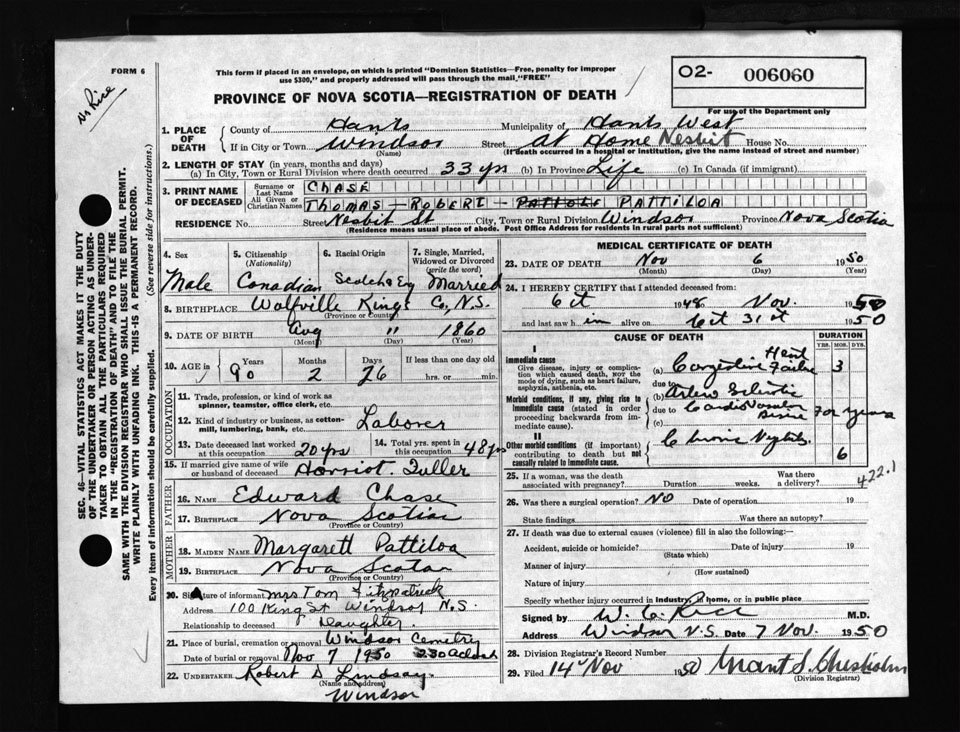 FORM 6
Dr Rice
This form if placed in an envelope, on which is printed "Dominion Statistics—Free, penalty for improper
use $300," and properly addressed will pass through the mail, "FREE"
O2- 006060
For use of the Department only
PROVINCE OF NOVA SCOTIA—REGISTRATION OF DEATH
1. PLACE OF DEATH
County of Hants Municipality of Hants West
If in City or Town Windsor Street At Home Nesbit House No.
(Name) (If death occurred in a hospital or institution, give the name instead of street and number)
2. LENGTH OF STAY (in years, months and days)
(a) In City, Town or Rural Division where death occurred 33 yrs (b) In Province Life (c) In Canada (if immigrant)
3. PRINT NAME OF DECEASED
Surname or Last Name CHASE
All Given or Christian Names THOMAS — ROBERT — PATTILOE PATTILOA
RESIDENCE No. Street Nesbit St City, Town or Rural Division Windsor Province Nova Scotia
(Residence means usual place of abode. Post Office Address for residents in rural parts not sufficient)
4. Sex Male
5. Citizenship (Nationality) Canadian
6. Racial Origin Scotch & Eng
7. Single, Married, Widowed or Divorced (write the word) Married
8. BIRTHPLACE Wolfville Kings Co, N.S.
(Province or Country)
9. DATE OF BIRTH Aug 11 1860
(Month) (Day) (Year)
10. AGE in Years Months Days If less than one day old
90 2 26 hrs. or min.
OCCUPATION
11. Trade, profession, or kind of work as spinner, teamster, office clerk, etc.
12. Kind of industry or business, as cotton-mill, lumbering, bank, etc. Laborer
13. Date deceased last worked at this occupation 20 yrs
14. Total yrs. spent in this occupation 48 yrs
15. If married give name of wife or husband of deceased Harriot Fuller
FATHER
16. NAME Edward Chase
17. BIRTHPLACE Nova Scotia
(Province or Country)
MOTHER
18. MAIDEN NAME Margarett Pattiloa
19. BIRTHPLACE Nova Scotia
(Province or Country)
20. Signature of informant Mrs Tom Fitzpatrick
Address 100 King St Windsor N.S.
Relationship to deceased Daughter
21. Place of burial, cremation or removal Windsor Cemetry
Date of burial or removal Nov 7 1950 230 oclock
22. UNDERTAKER Robert D Lindsay
(Name and Address)
Windsor
MEDICAL CERTIFICATE OF DEATH
23. DATE OF DEATH Nov 6 1950
(Month) (Day) (Year)
24. I HEREBY CERTIFY that I attended deceased from:
Oct 1948 Nov. 1950
and last saw him alive on Oct 31st 1950
CAUSE OF DEATH DURATION
YRS. MOS. DYS.
I
Immediate cause
Give disease, injury or complication which caused death, NOT the mode of dying, such as heart failure, asphyxia, asthenia, etc.
(a) Congestive Heart Failure 3
due to
Morbid conditions, if any, giving rise to immediate cause (stated in order proceeding backwards from immediate cause).
(b) Arterio Sclerotic
due to Cardio Vascular Disease For years
(c)
II
Other morbid conditions (if important) contributing to death but not causally related to immediate cause.
Chronic 6
25. If a woman, was the death associated with pregnancy? Duration weeks. Was there a delivery?
422.1
26. Was there a surgical operation? NO Date of operation 19
State findings Was there an autopsy?
27. If death was due to external causes (violence) fill in also the following:—
Accident, suicide or homicide? Date of injury 19
(State which)
Manner of injury
(How sustained)
Nature of injury
Specify whether injury occurred in industry, in home, or in public place
Signed by W. C. Rice M.D.
Address Windsor N.S. Date 7 Nov. 1950
28. Division Registrar's Record Number
29. Filed 14 Nov 1950 Grant S. Chisholm
(Division Registrar)
SEC. 46—VITAL STATISTICS ACT MAKES IT THE DUTY
OF THE UNDERTAKER OR PERSON ACTING AS UNDER-
TAKER TO OBTAIN ALL THE PARTICULARS REQUIRED
IN THE "REGISTRATION OF DEATH" AND TO FILE THE
SAME WITH THE DIVISION REGISTRAR WHO SHALL ISSUE THE BURIAL PERMIT.
WRITE PLAINLY WITH UNFADING INK. THIS IS A PERMANENT RECORD.
Every item of information should be carefully supplied. (See reverse side for instructions.)